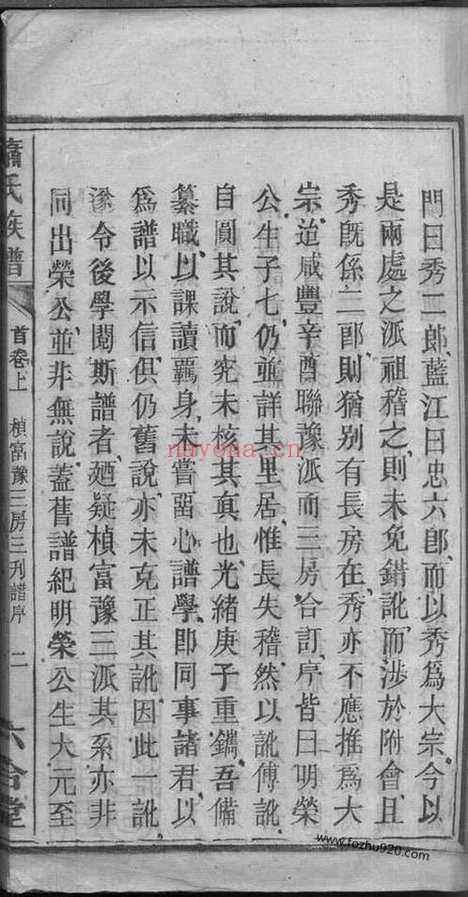 門曰秀二郎藍江曰忠六郎而以秀爲大宗今以
是兩處之派祖稽之則未免錯訛而涉於附會且
秀既係二郎則猶别有長房在秀亦不應推爲大
宗迨咸豐辛酉聯豫派而三房合訂序皆曰明榮
公生子七仍並詳其里居惟長失稽然以訛傳訛
自圓其說而究未核其真也光緒庚子重鐫吾備
纂職以課讀羈身未嘗留心譜學即同事諸君以
爲譜以示信俱仍舊說亦未克正其訛因此一訛
遂令後學閱斯譜者廻疑楨富豫三派其系亦非
同出榮公並非無說蓋舊譜紀明榮公生大元至
蕭氏族譜
首卷上 楨富豫三房三刊譜序 二
六合堂
nayona.cn
www.fozhu920.com